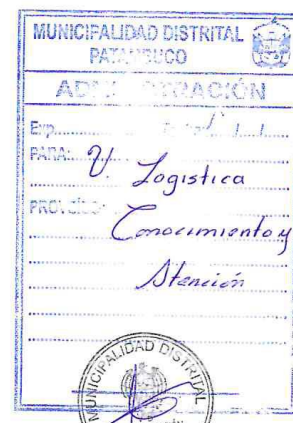 MUNICIPALIDAD DISTRITAL
PATAMBUCO
ADMINISTRACIÓN
Exp.
PARA: U. Logistica
Conocimiento y
Atención
MUNICIPALIDAD DISTRITAL